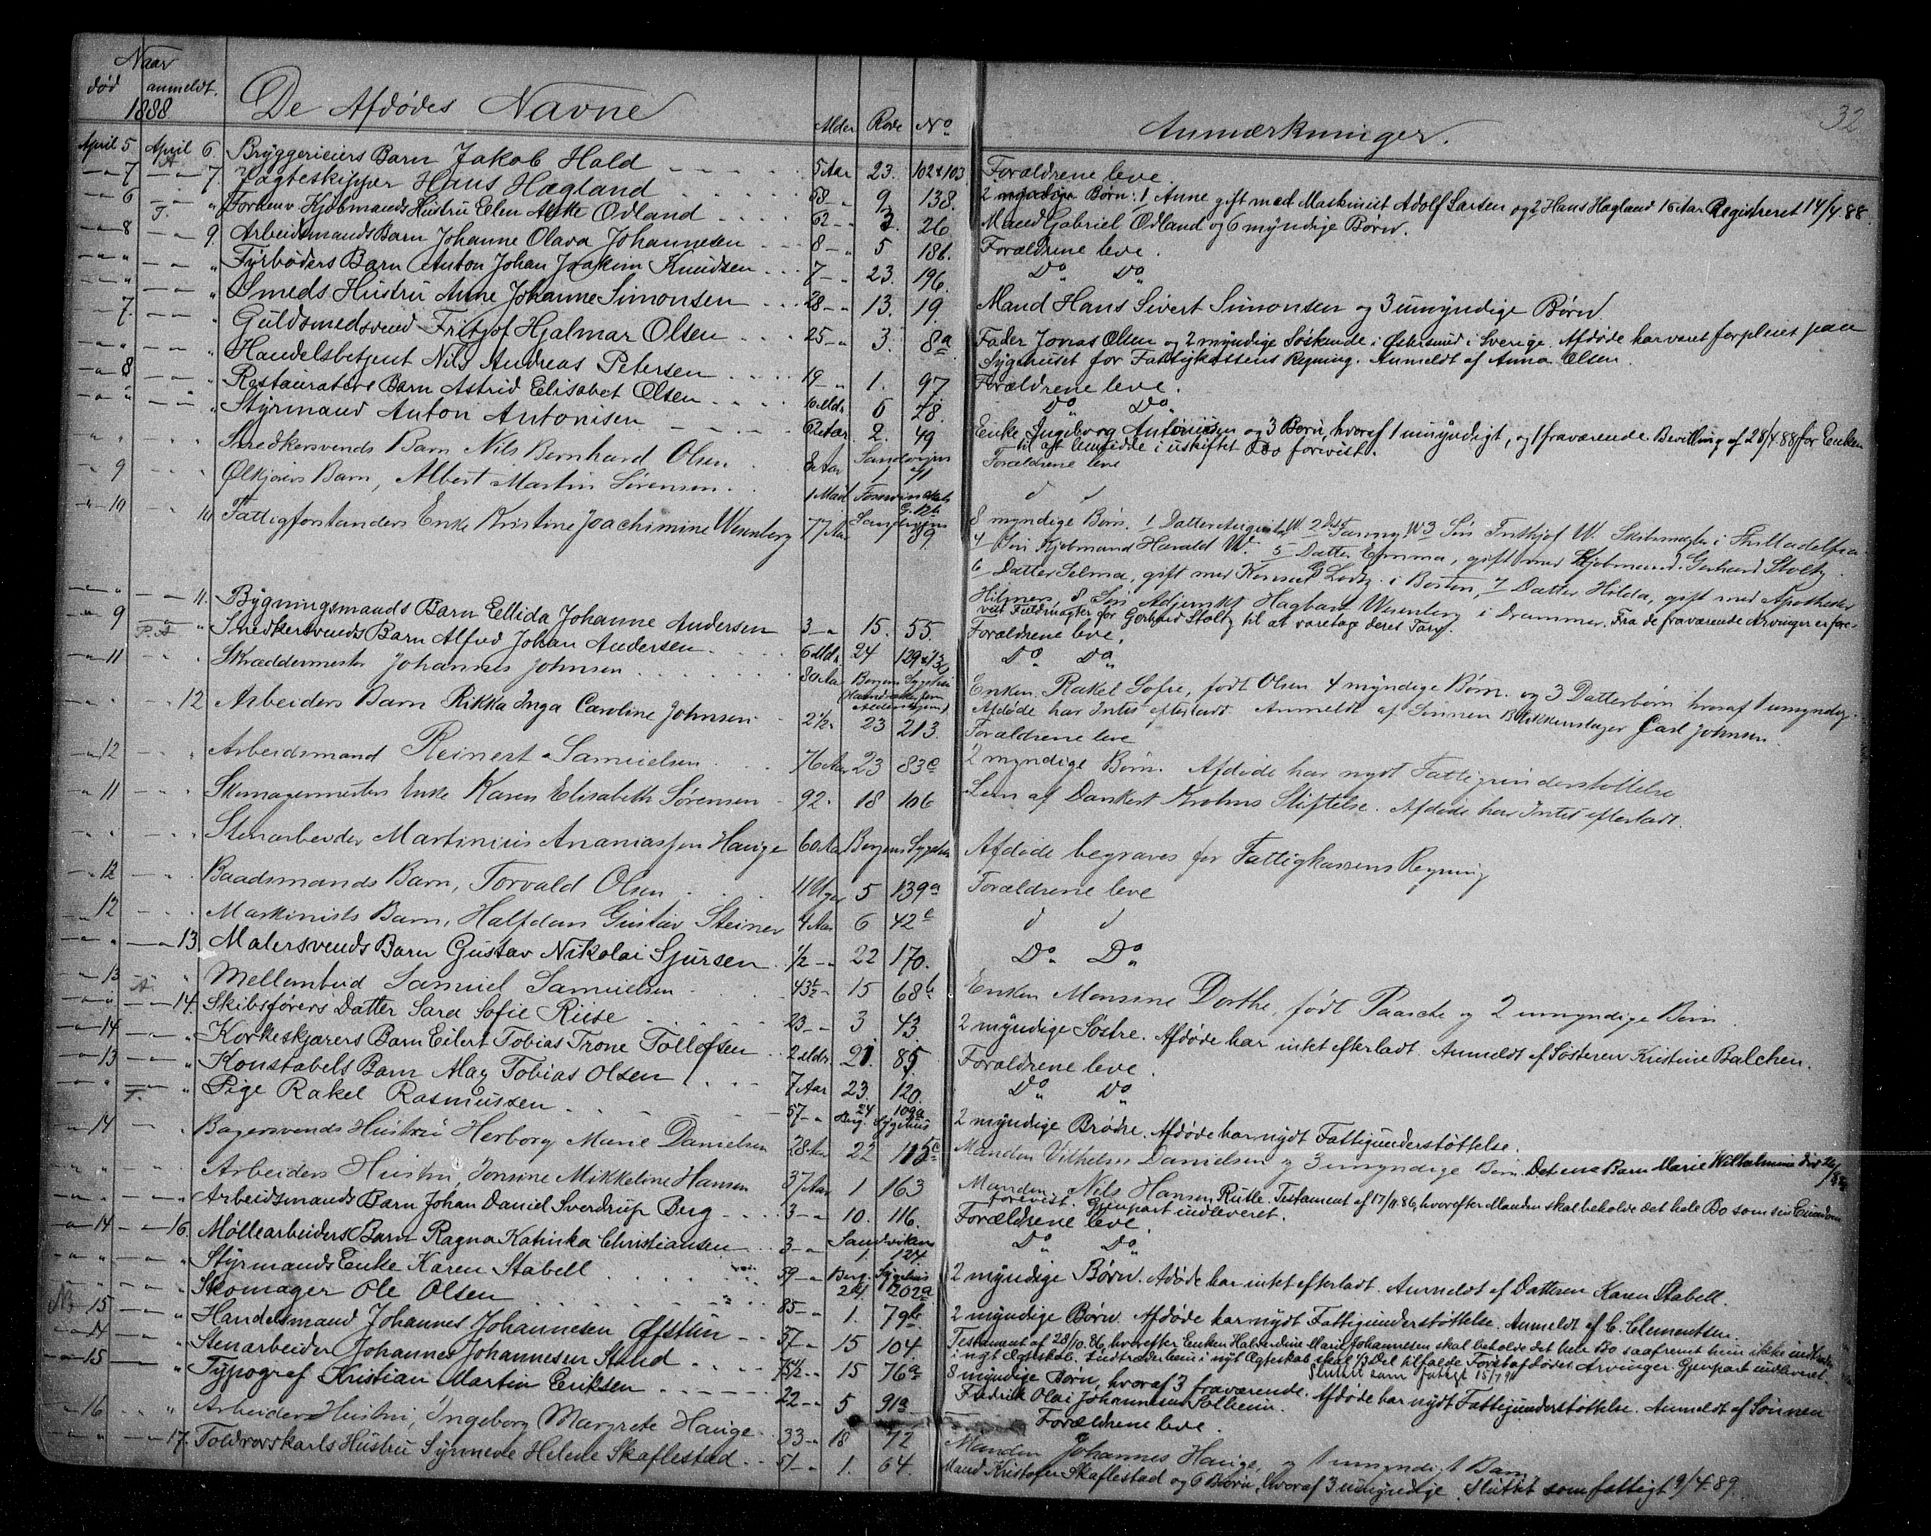 32
Naar
død anmeldt. De Afdødes Navne Alder Rode No Anmærkninger.
1888
April 5 April 6 Bryggerieiers Barn Jakob Hald 5 Aar 23. 102 & 103 Forældrene leve.
7 A 7 Jagteskipper Hans Hægland 58 9 138. 2 myndige Børn: 1 Anne gift med Maskinist Adolf Larsen og 2 Hans Hagland 16 Aar Registreret 14/4 88.
6 " Forhenv Kjøbmands Hustru Elen Odland 62 3. 26 Mand Gabriel Odland og 6 myndige Børn.
8 T. 9 Arbeidsmands Barn Johanne Olava Johannesen 8 5 186. Forældrene leve.
" " Fyrbøders Barn Anton Johan Joakim Knudsen 7 23. 196. Do Do
" " Smeds Hustru Anne Johanne Simonsen 28 13. 19. Mand Hans Sivert Simonsen og 3 umyndige Børn.
7. " Guldsmedsvend Fritjof Hjalmar Olsen 25 3. 8a Fader Jonas Olsen og 2 myndige Søskende i Østersund i Sverige. Afdøde har været forpleiet paa
Sygehuset for Fattigkassens Regning. Anmeldt af Anna Olsen.
" " Handelsbetjent Nils Andreas Petersen 19 1. 97 Forældrene leve.
8 " Restauratørs Barn Astrid Elisabet Olsen 10 Mdr. 6 28. Do Do
" " Styrmand Anton Antonisen 62 Aar. 2. 49 Enke Ingeborg Antonisen og 3 Børn, hvoraf 1 umyndigt, og 1 fraværende. Bevilling af 28/4 88 for Enken
til at hensidde i uskiftet Bo forevist.
" Snedkersvends Barn Nils Bernhard Olsen 8 Aar Sandvigen Forældrene leve
9 Ølkjørers Barn, Albert Martin Sørensen 1 Mdr d d
10 10 Fattigforstanders Enke Kristine Joachimine Wesenberg 77 Aar 89. 8 myndige Børn. 1 Datter W. 2 Fanny W 3 Søn Frithjof W. i Philladelfia
4 Søn Kjøbmand Harald W. 5 Datter Emma, gift med Kjøbmand Gerhard Stoltz
6 Datter Selma, gift med Konsul G Lootz i Boston, 7 Datter Hilda, gift med Apotheker
Hilmers, 8 Søn Adjunkt Hagbart Wesenberg i Drammen. Fra de fraværende Arvinger er fore-
vist Fuldmagter for Gerhard Stoltz til at varetage deres Tarv.
" 11. Bygningsmands Barn Ellida Johanne Andersen 3 15. 55. Forældrene leve.
9 P. A " Snedkersvends Barn Alfred Johan Andersen 6 Mdr. 24 129 & 130 Do Do
11 Skræddermester Johannes Johnsen 80 Aar Bergens Sygehus Enken Rakel Sofie, født Olsen 4 myndige Børn og 3 Datterbørn hvoraf 1 umyndig.
Afdøde har Intet efterladt. Anmeldt af Sønnen Blikkenslager Carl Johnsen.
" 12 Arbeiders Barn Rikka Inga Caroline Johnsen 2 1/2 23 213. Forældrene leve
12 " Arbeidsmand Reinert Samuelsen 76 Aar 23 83c 2 myndige Børn. Afdøde har nydt Fattigunderstøttelse
11 Skomagermesters Enke Karen Elisabeth Sørensen 92. 18 106 Lem af Dankert Krohns Stiftelse. Afdøde har Intet efterladt.
" Stenarbeider Martinius Ananiassen Hauge 60 Aar Bergens Sygehus Afdøde begraves for Fattigkassens Regning
12 Baadsmands Barn, Torvald Olsen 11 Uger 5 139a Forældrene leve
12 Maskinists Barn, Halfdan Gustav Steiner 4 Aar 6 42c d d
" 13. Malersvends Barn Gustav Nikolai Sjursen 1/2 22 170. Do Do
13 " Mellembud Samuel Samuelsen 43 1/2 15 68b Enken Monsine Dorthe, født Paasche og 2 umyndige Børn.
" A 14. Skibsførers Datter Sara Sofie Riise 23 3 43 2 myndige Søstre. Afdøde har intet efterladt. Anmeldt af Søsteren Kristine Balchen.
14 " Korkeskjærers Barn Eilert Tobias Trone Tollefsen 2 Mdr. 21. 85. Forældrene leve.
13 " Konstabels Barn Max Tobias Olsen 7 Aar 23. 120. Do Do
" T. " Pige Rakel Rasmussen 57 24 109a Berg. Sygehus 2 myndige Brødre. Afdøde har nydt Fattigunderstøttelse.
14 Bagersvends Hustru Herborg Marie Danielsen 28 Aar 22 115c Manden Vilhelm Danielsen og 3 umyndige Børn. Det ene Barn Marie Wilhelmine død
" Arbeiders Hustru, Jonsine Mikkeline Hansen 37 Aar 1 163 Manden Nils Hansen Rutle. Testament af 17/11 86, hvorefter Manden skal beholde det hele Bo som sin Eiendom
forevist. Gjenpart indleveret.
" " Arbeidsmands Barn Johan Daniel Sverdrup Berg 3 10. 116. Forældrene leve.
14 16. Møllearbeiders Barn Ragna Katinka Christiansen 3 Sandviken 1. 124. Do Do
" " Styrmands Enke Karen Stabell 59 Berg. Sygehus 24. 202a 2 myndige Børn. Afdøde har intet efterladt. Anmeldt af Datteren Karen Stabell.
" " Skomager Ole Olsen 85 1. 79b 2 myndige Børn. Afdøde har nydt Fattigunderstøttelse. Anmeldt af C. Clementsen.
NB 15 " Handelsmand Johannes Johannesen Øfstun 57 15 104 Testament af 28/10 86, hvorefter Enken Halverdine Marie Johannesen skal beholde det hele Bo saafremt hun ikke indtræder
i nyt Ægteskab. Indtræder hun i nyt Ægteskab skal 1/2 Del tilfalde Førstafdødes Arvinger. Gjenpart indleveret.
Sluttet som fattigt 15/7 91
14 " Stenarbeider Johannes Johannesen Stend 75 1/2 15 76a 8 myndige Børn, hvoraf 3 fraværende. Afdøde har nydt Fattigunderstøttelse. Anmeldt af Sønnen
Fredrik Olai Johannesen Solheim.
15 " Typograf Kristian Martin Eriksen 22 5 913 Forældrene leve.
16 " Arbeiders Hustru, Ingeborg Margrete Hauge 33 18 72 Manden Johannes Hauge, og 1 umyndigt Barn
" 17. Toldrorskarls Hustru Synneve Helene Skaflestad 51 1. 64. Mand Kristofer Skaflestad og 6 Børn, hvoraf 3 umyndige. Sluttet som fattigt 9/4 89.